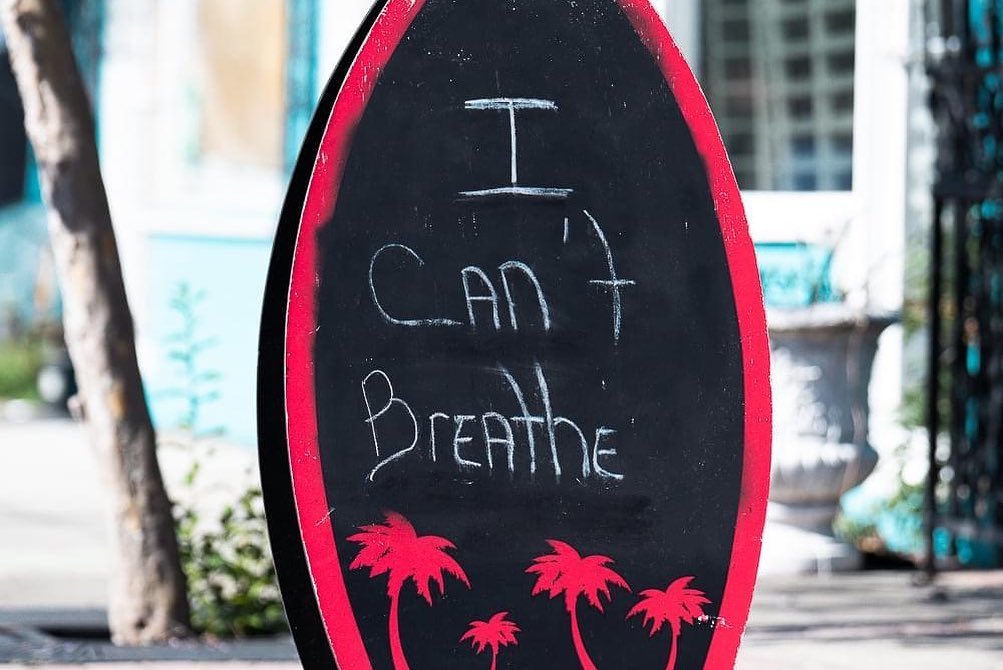 I
Can't
Breathe